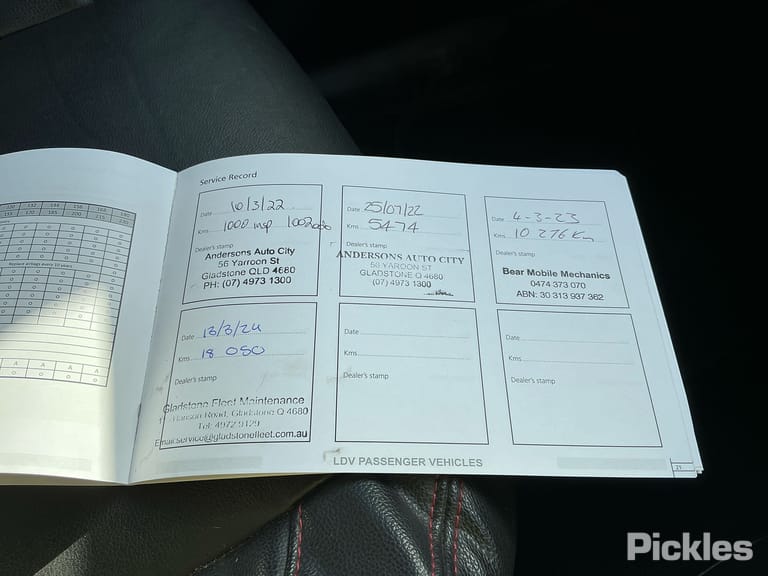 120 132 144 156 168 180
155 170 185 200 215 230
Replace airbags every 10 years
Service Record
Date 10/3/22
Kms 1000 insp
Dealer's stamp
Andersons Auto City
56 Yarroon St
Gladstone QLD 4680
PH: (07) 4973 1300
Date 25/07/22
Kms 5474
Dealer's stamp
ANDERSONS AUTO CITY
56 YAROON ST
GLADSTONE Q 4680
(07) 4973 1300
Date 4-3-23
Kms 10 276 Km
Dealer's stamp
Bear Mobile Mechanics
0474 373 070
ABN: 30 313 937 362
Date 13/3/24
Kms 18 050
Dealer's stamp
Gladstone Fleet Maintenance
Hanson Road, Gladstone Q 4680
Tel: 4972 9129
Email:service@gladstonefleet.com.au
Date
Kms
Dealer's stamp
Date
Kms
Dealer's stamp
LDV PASSENGER VEHICLES
21
Pickles